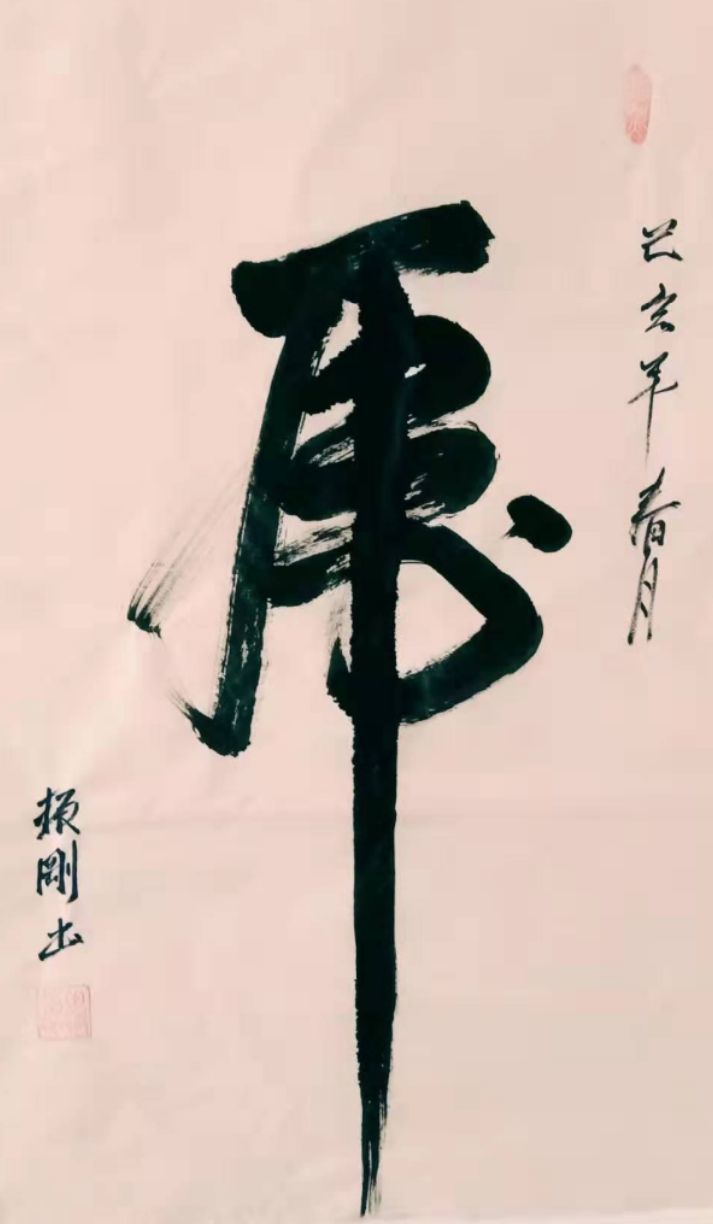 己亥年春月
虎
振剛书